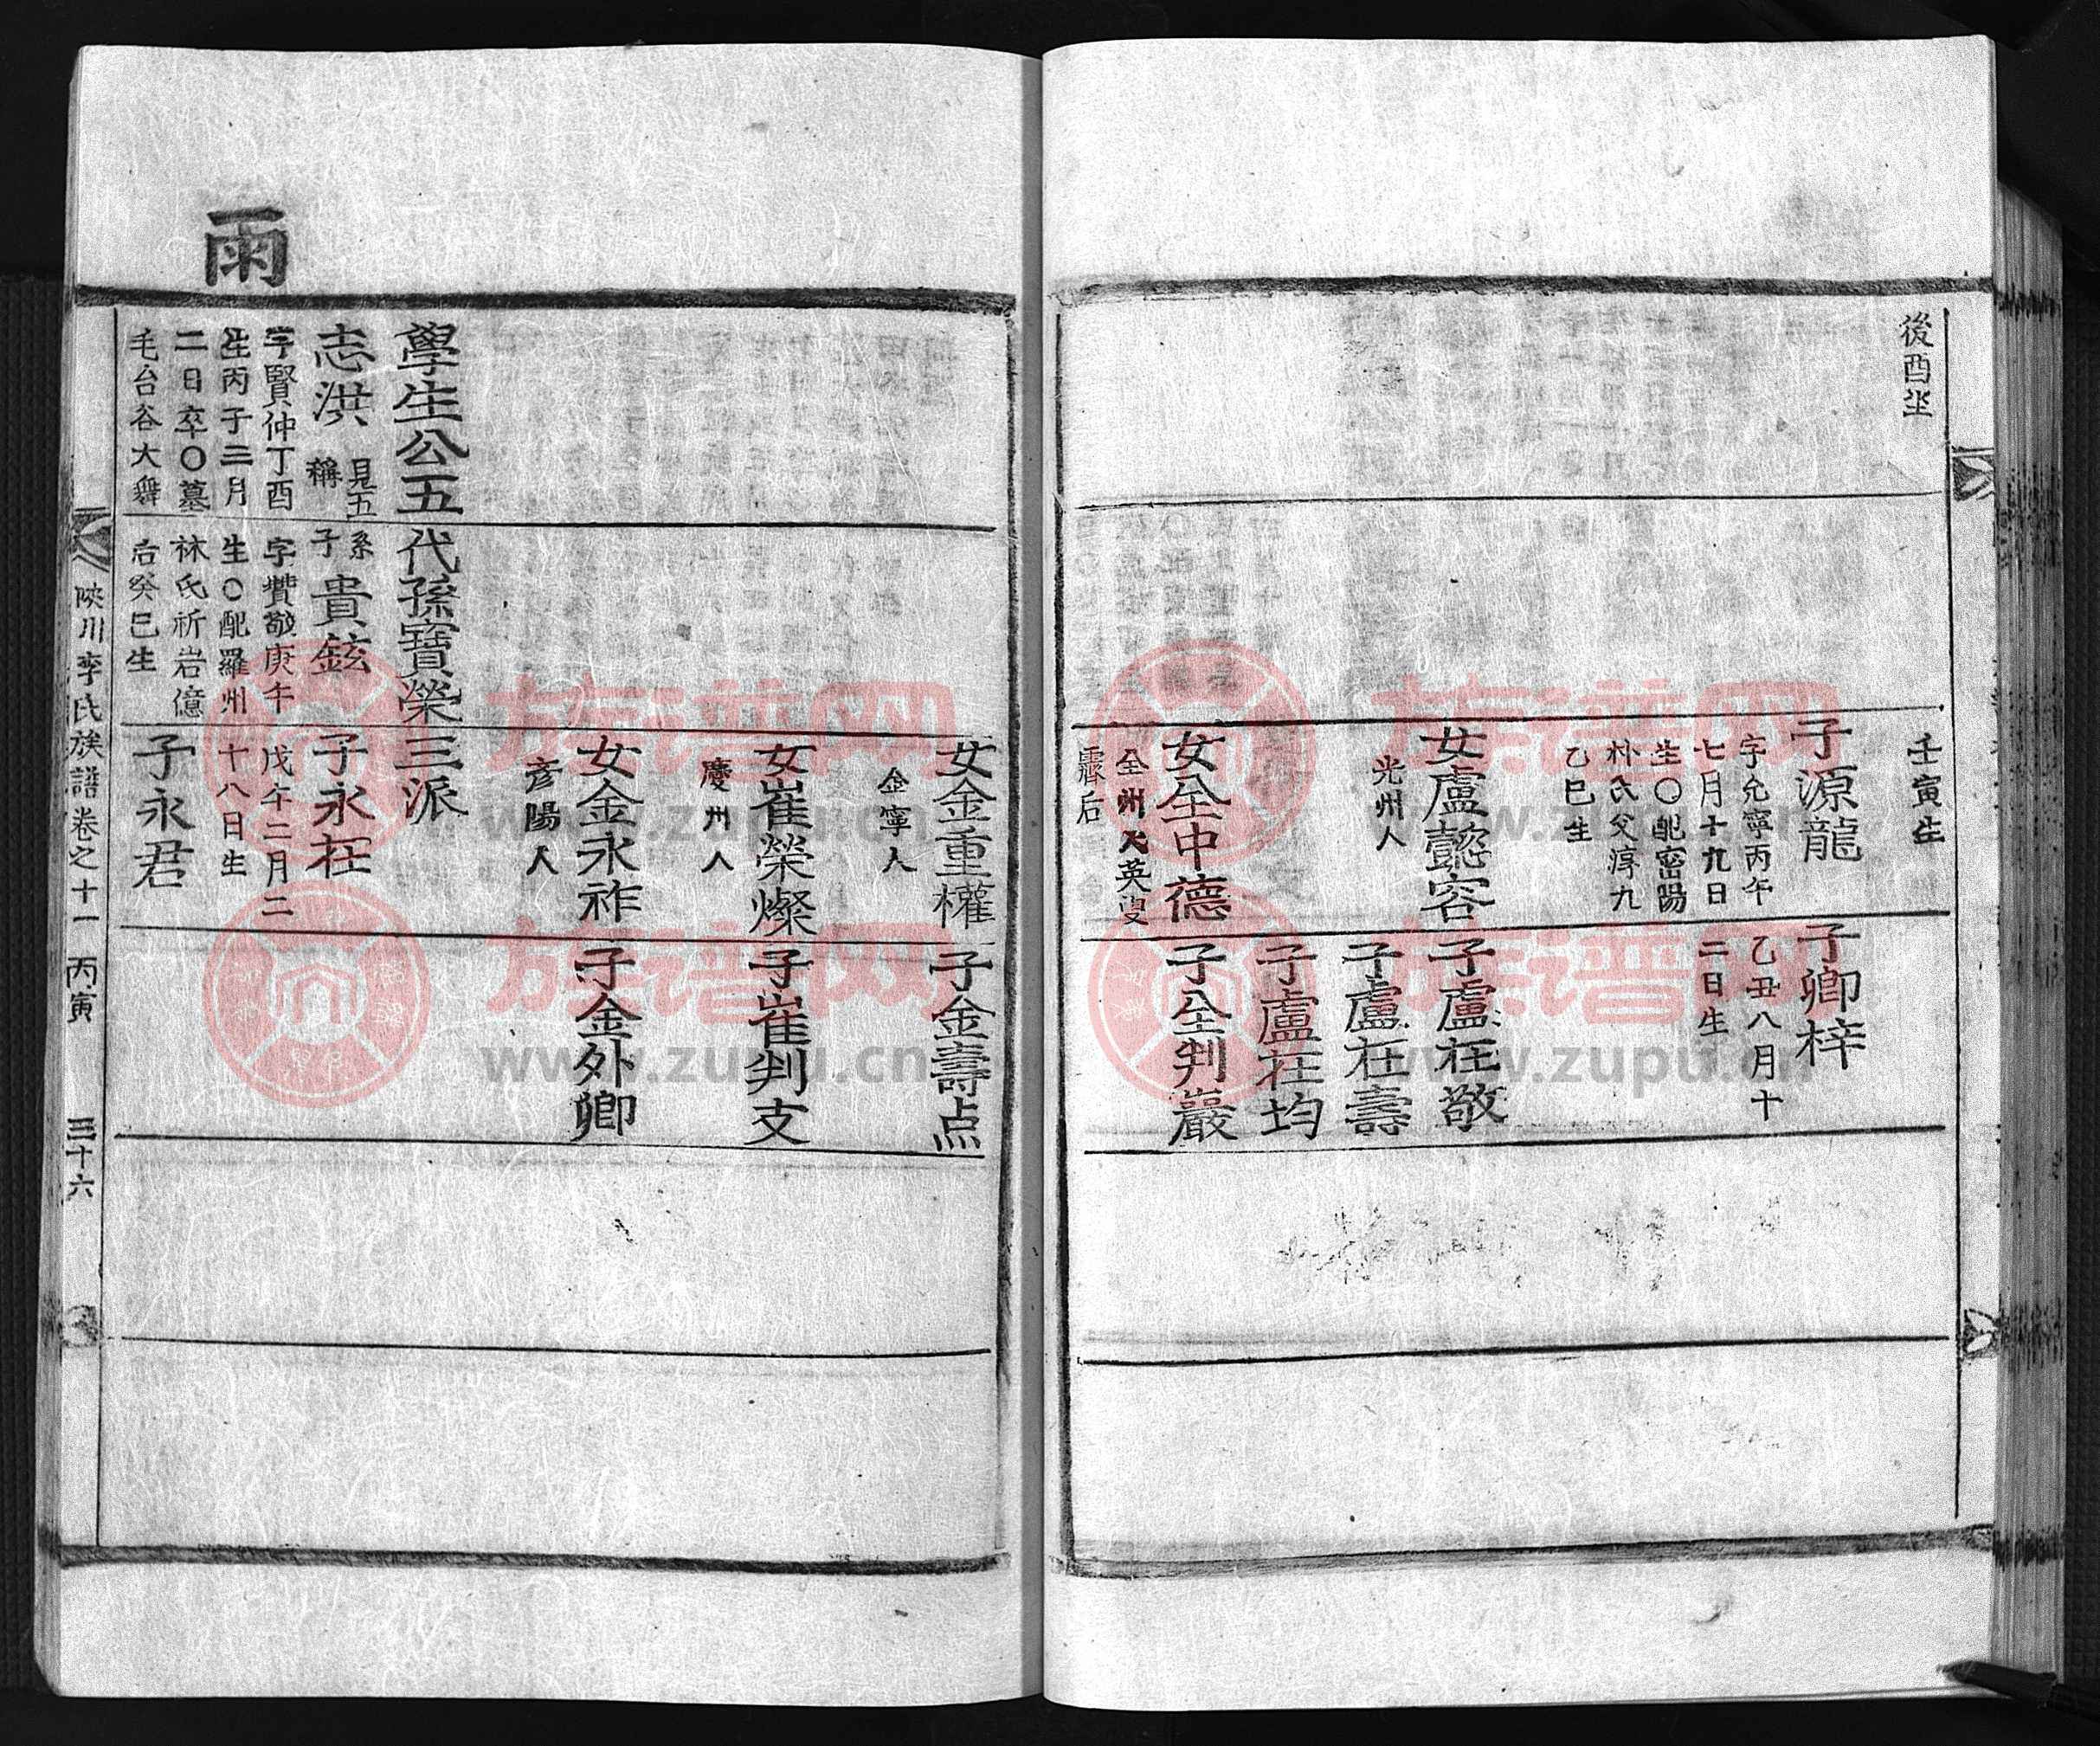 後酉坐
壬寅生
子源龍
字允寧丙午
七月十九日
生〇配密陽
朴氏父淳九
乙巳生
女盧懿容
光州人
女全中德
全州人英叟
霽后
子卿梓
乙丑八月十
二日生
子盧在敬
子盧在壽
子盧在均
子全判巖
女金重權
金寧人
女崔榮燦
慶州人
女金永祚
彦陽人
子金壽点
子崔判支
子金外卿
雨
學生公五代孫寶榮三派
志洪 見五
稱
字賢仲丁酉
生丙子三月
二日卒〇墓
毛台谷大舞
系
子 貴鉉
字攢敬庚午
生〇配羅州
林氏祈岩億
后癸巳生
子永在
戊午二月二
十八日生
子永君
陜川李氏族譜卷之十一 丙寅 三十六
族谱网
www.zupu.cn
族谱网
www.zupu.cn
族谱网
www.zupu.cn
族谱网
www.zupu.cn